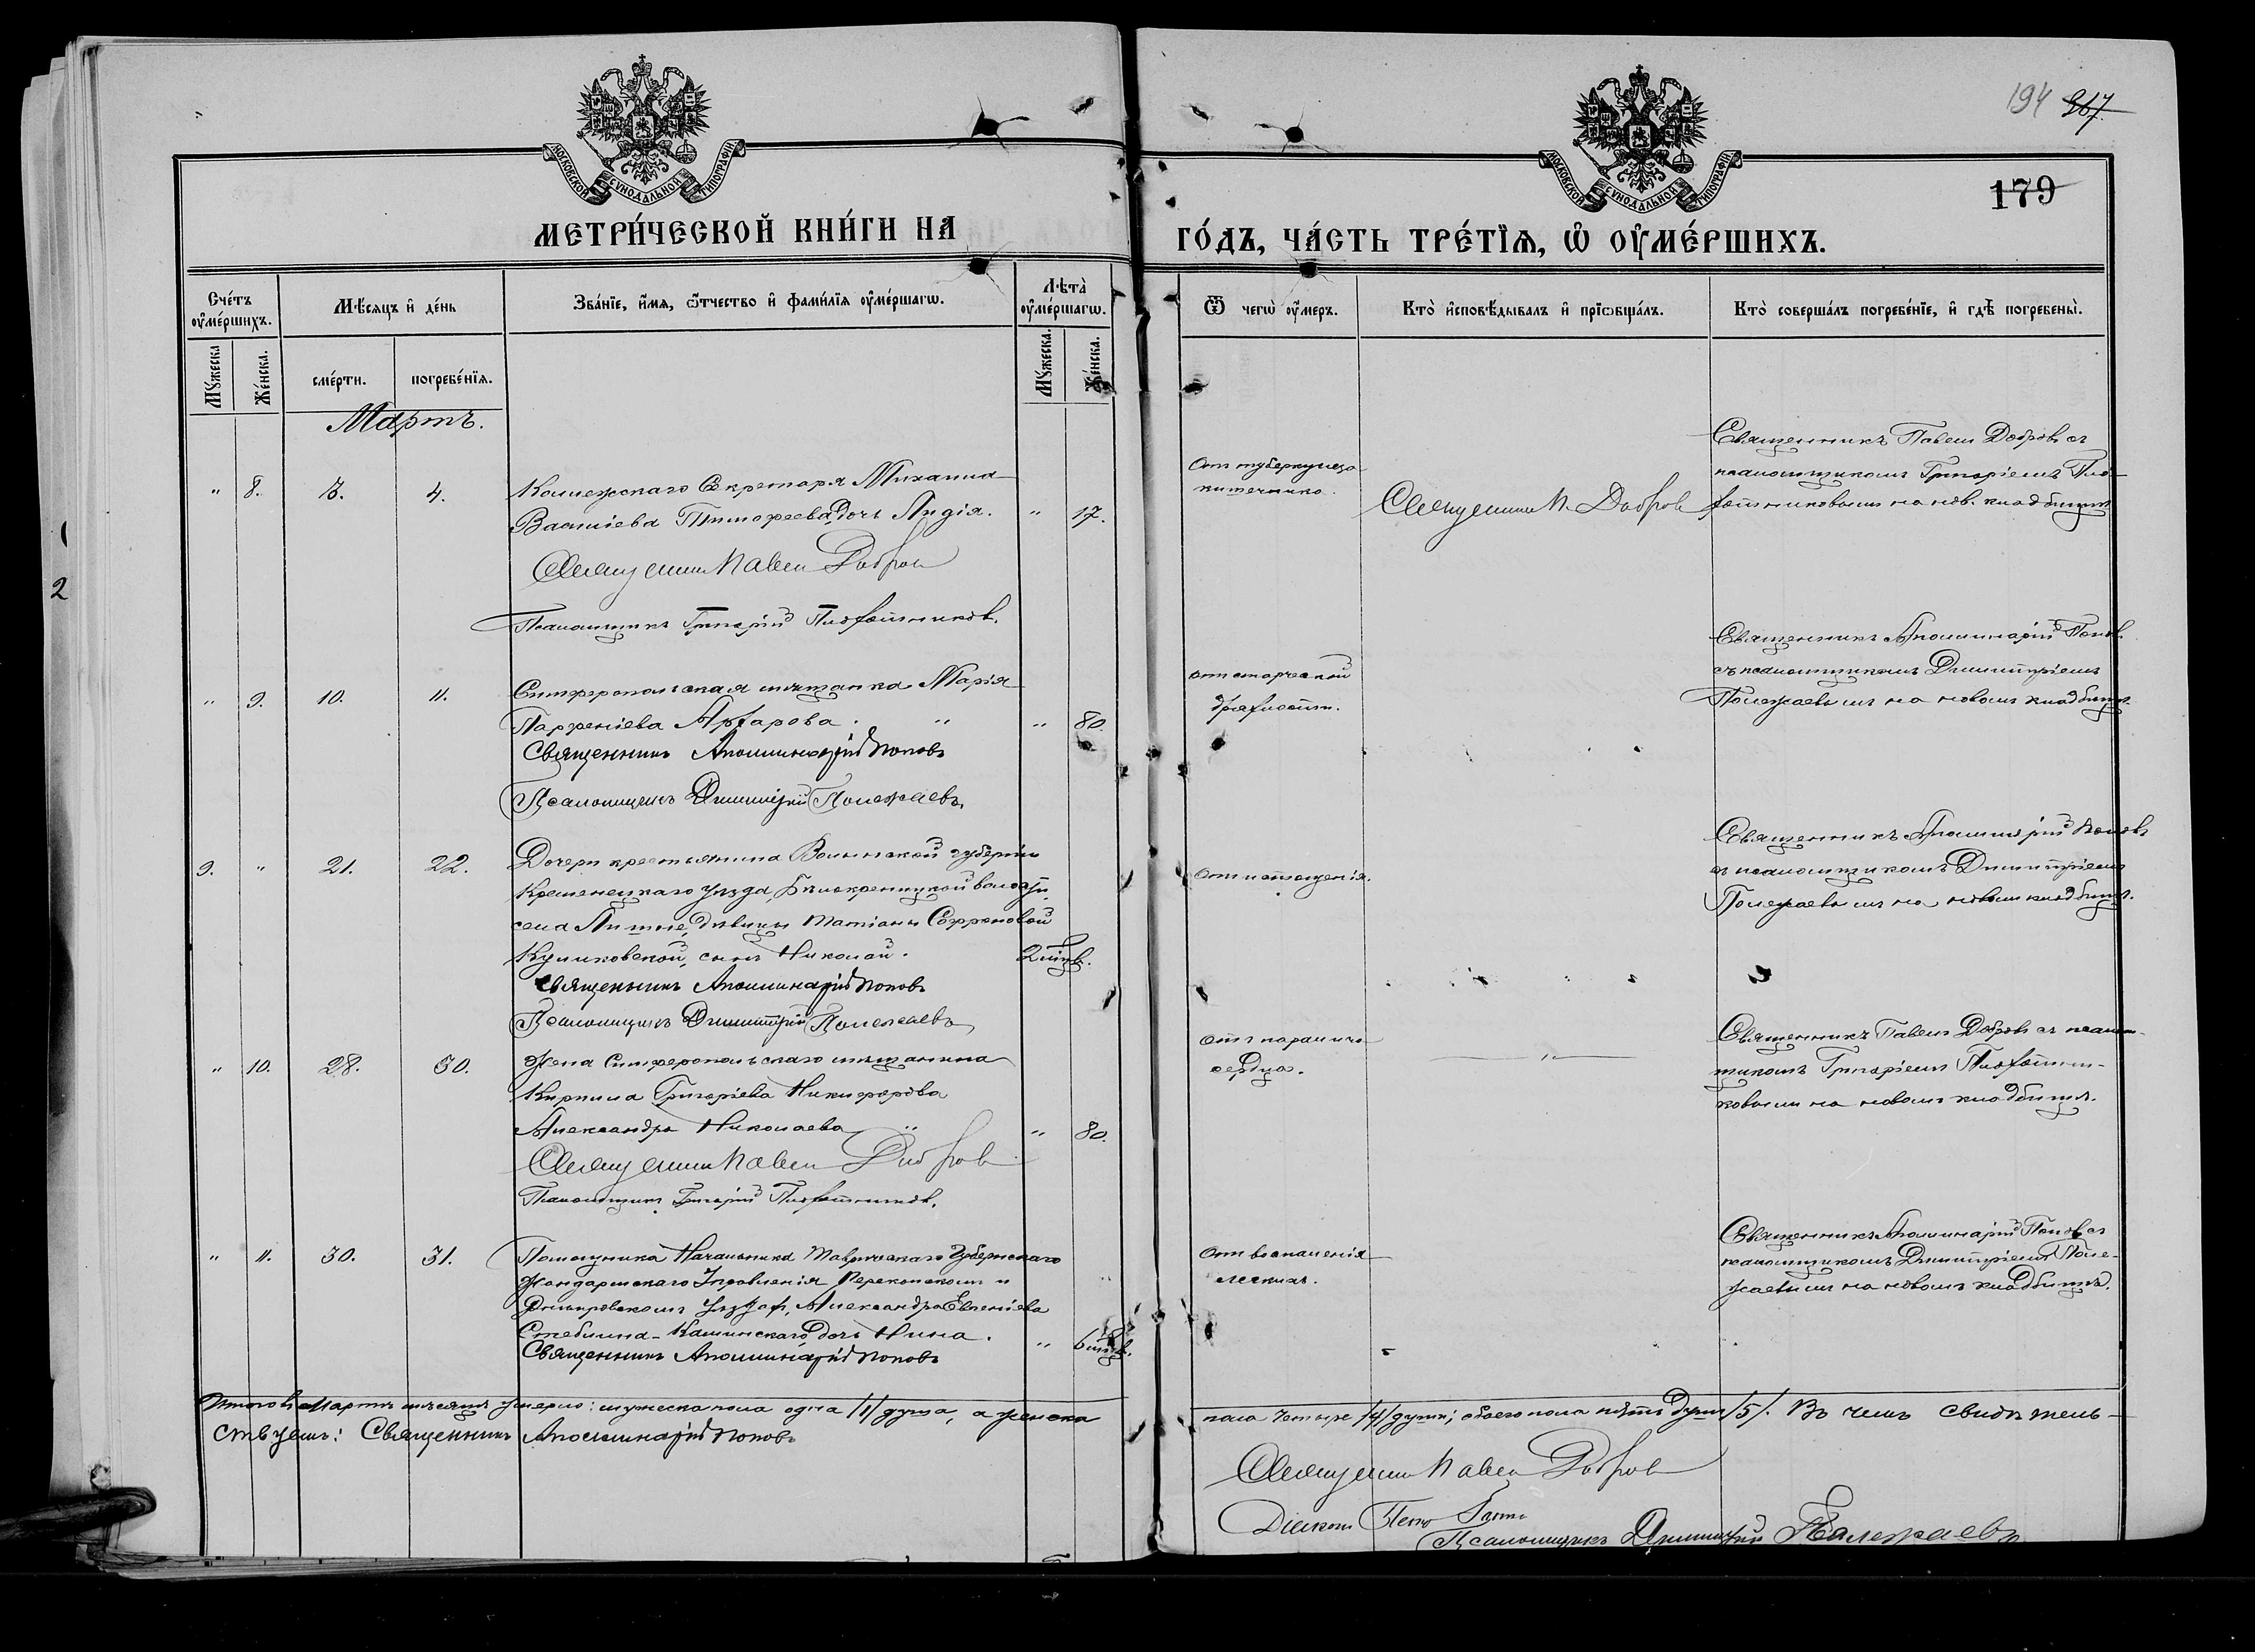 194 267.
179
МОСКОВСКОЙ СУНОДАЛЬНОЙ ТИПОГРАФІИ
МОСКОВСКОЙ СУНОДАЛЬНОЙ ТИПОГРАФІИ
МЕТРИ́ЧЕСКОЙ КНИ́ГИ НА
ГО́ДЪ, ЧА́СТЬ ТРЕ́ТІѦ, Ѡ҆ ОУ҆МЕ́РШИХЪ.
Сче́тъ оу҆ме́ршихъ.
Мѣ́сяцъ и҆ де́нь
Зва́нїе, и҆́мя, ѻ҆́тчество и҆ фами́лїя оу҆ме́ршагѡ.
Лѣта̀ оу҆ме́ршагѡ.
Ѿ чегѡ̀ оу҆́меръ.
Кто̀ и҆сповѣ́дывалъ и҆ прїѡбща́лъ.
Кто̀ соверша́лъ погребе́нїе, и҆ гдѣ̀ погребены̀.
Му́жеска
Же́нска.
сме́рти.
погребе́нїя.
Му́жеска.
Же́нска.
Мартъ.
" 8. 3. 4.
Коллежскаго Секретаря Михаила
Василіева Тимофеева дочь Лидія. " 17.
Священник Павел Добров
Псаломщикъ Григорій Плохотников.
От туберкулеза
кишечника.
Священник П. Добров
Священникъ Павелъ Добровъ съ
псаломщикомъ Григоріемъ Пло-
хотниковымъ на нов. кладбищѣ
" 9. 10. 11.
Симферопольская мѣщанка Марія
Парфеніева . " " 80.
Священникъ Аполлинарій Поповъ
Псаломщикъ Димитрій Полежаевъ.
от старческой
дряхлости.
Священникъ Аполлинарій Попов.
съ псаломщикомъ Димитріемъ
Полежаевымъ на новомъ кладбищѣ.
9. " 21. 22.
Дочери крестьянина Волынской губерніи
Кременецкаго уѣзда, Бѣлокриницкой волости,
села дѣвицы Татіаны Софроновой
Куликовской, сынъ Николай. 2 мѣс.
Священникъ Аполлинарій Поповъ
Псаломщикъ Димитрій Полежаевъ
От истощенія.
Священникъ Аполлинарій Поповъ
съ псаломщикомъ Димитріемъ
Полежаевымъ на новомъ кладбищѣ.
" 10. 28. 30.
Жена Симферопольскаго мѣщанина
Кирилла Григоріева Никифорова
Александра Николаева " " 80.
Священник Павел Добров
Псаломщикъ Григорій Плохотников.
От паралича
сердца.
"
Священникъ Павелъ Добровъ съ псалом-
щикомъ Григоріемъ Плохотни-
ковымъ на новомъ кладбищѣ.
" 11. 30. 31.
Помощника Начальника Таврическаго Губернскаго
Жандармскаго Управленія Перекопскомъ и
Днѣпровскомъ уѣздах, Александра Евгеніева
Стеблина-Каминскаго дочь Нина. " 6 мѣс.
Священникъ Аполлинарій Поповъ
От воспаленія
легкихъ.
Священникъ Аполлинарій Поповъ съ
псаломщикомъ Димитріемъ Поле-
жаевымъ на новомъ кладбищѣ.
Итого въ Мартѣ мѣсяцѣ умерло: мужеска пола одна /1/ душа, а женска
пола четыре /4/ души; обоего пола пять душ /5/. Въ чемъ свидѣтель-
ствуемъ: Священникъ Аполлинарій Поповъ
Священник Павел Добров
Діакон
Псаломщикъ Димитрій Полежаевъ
1
2